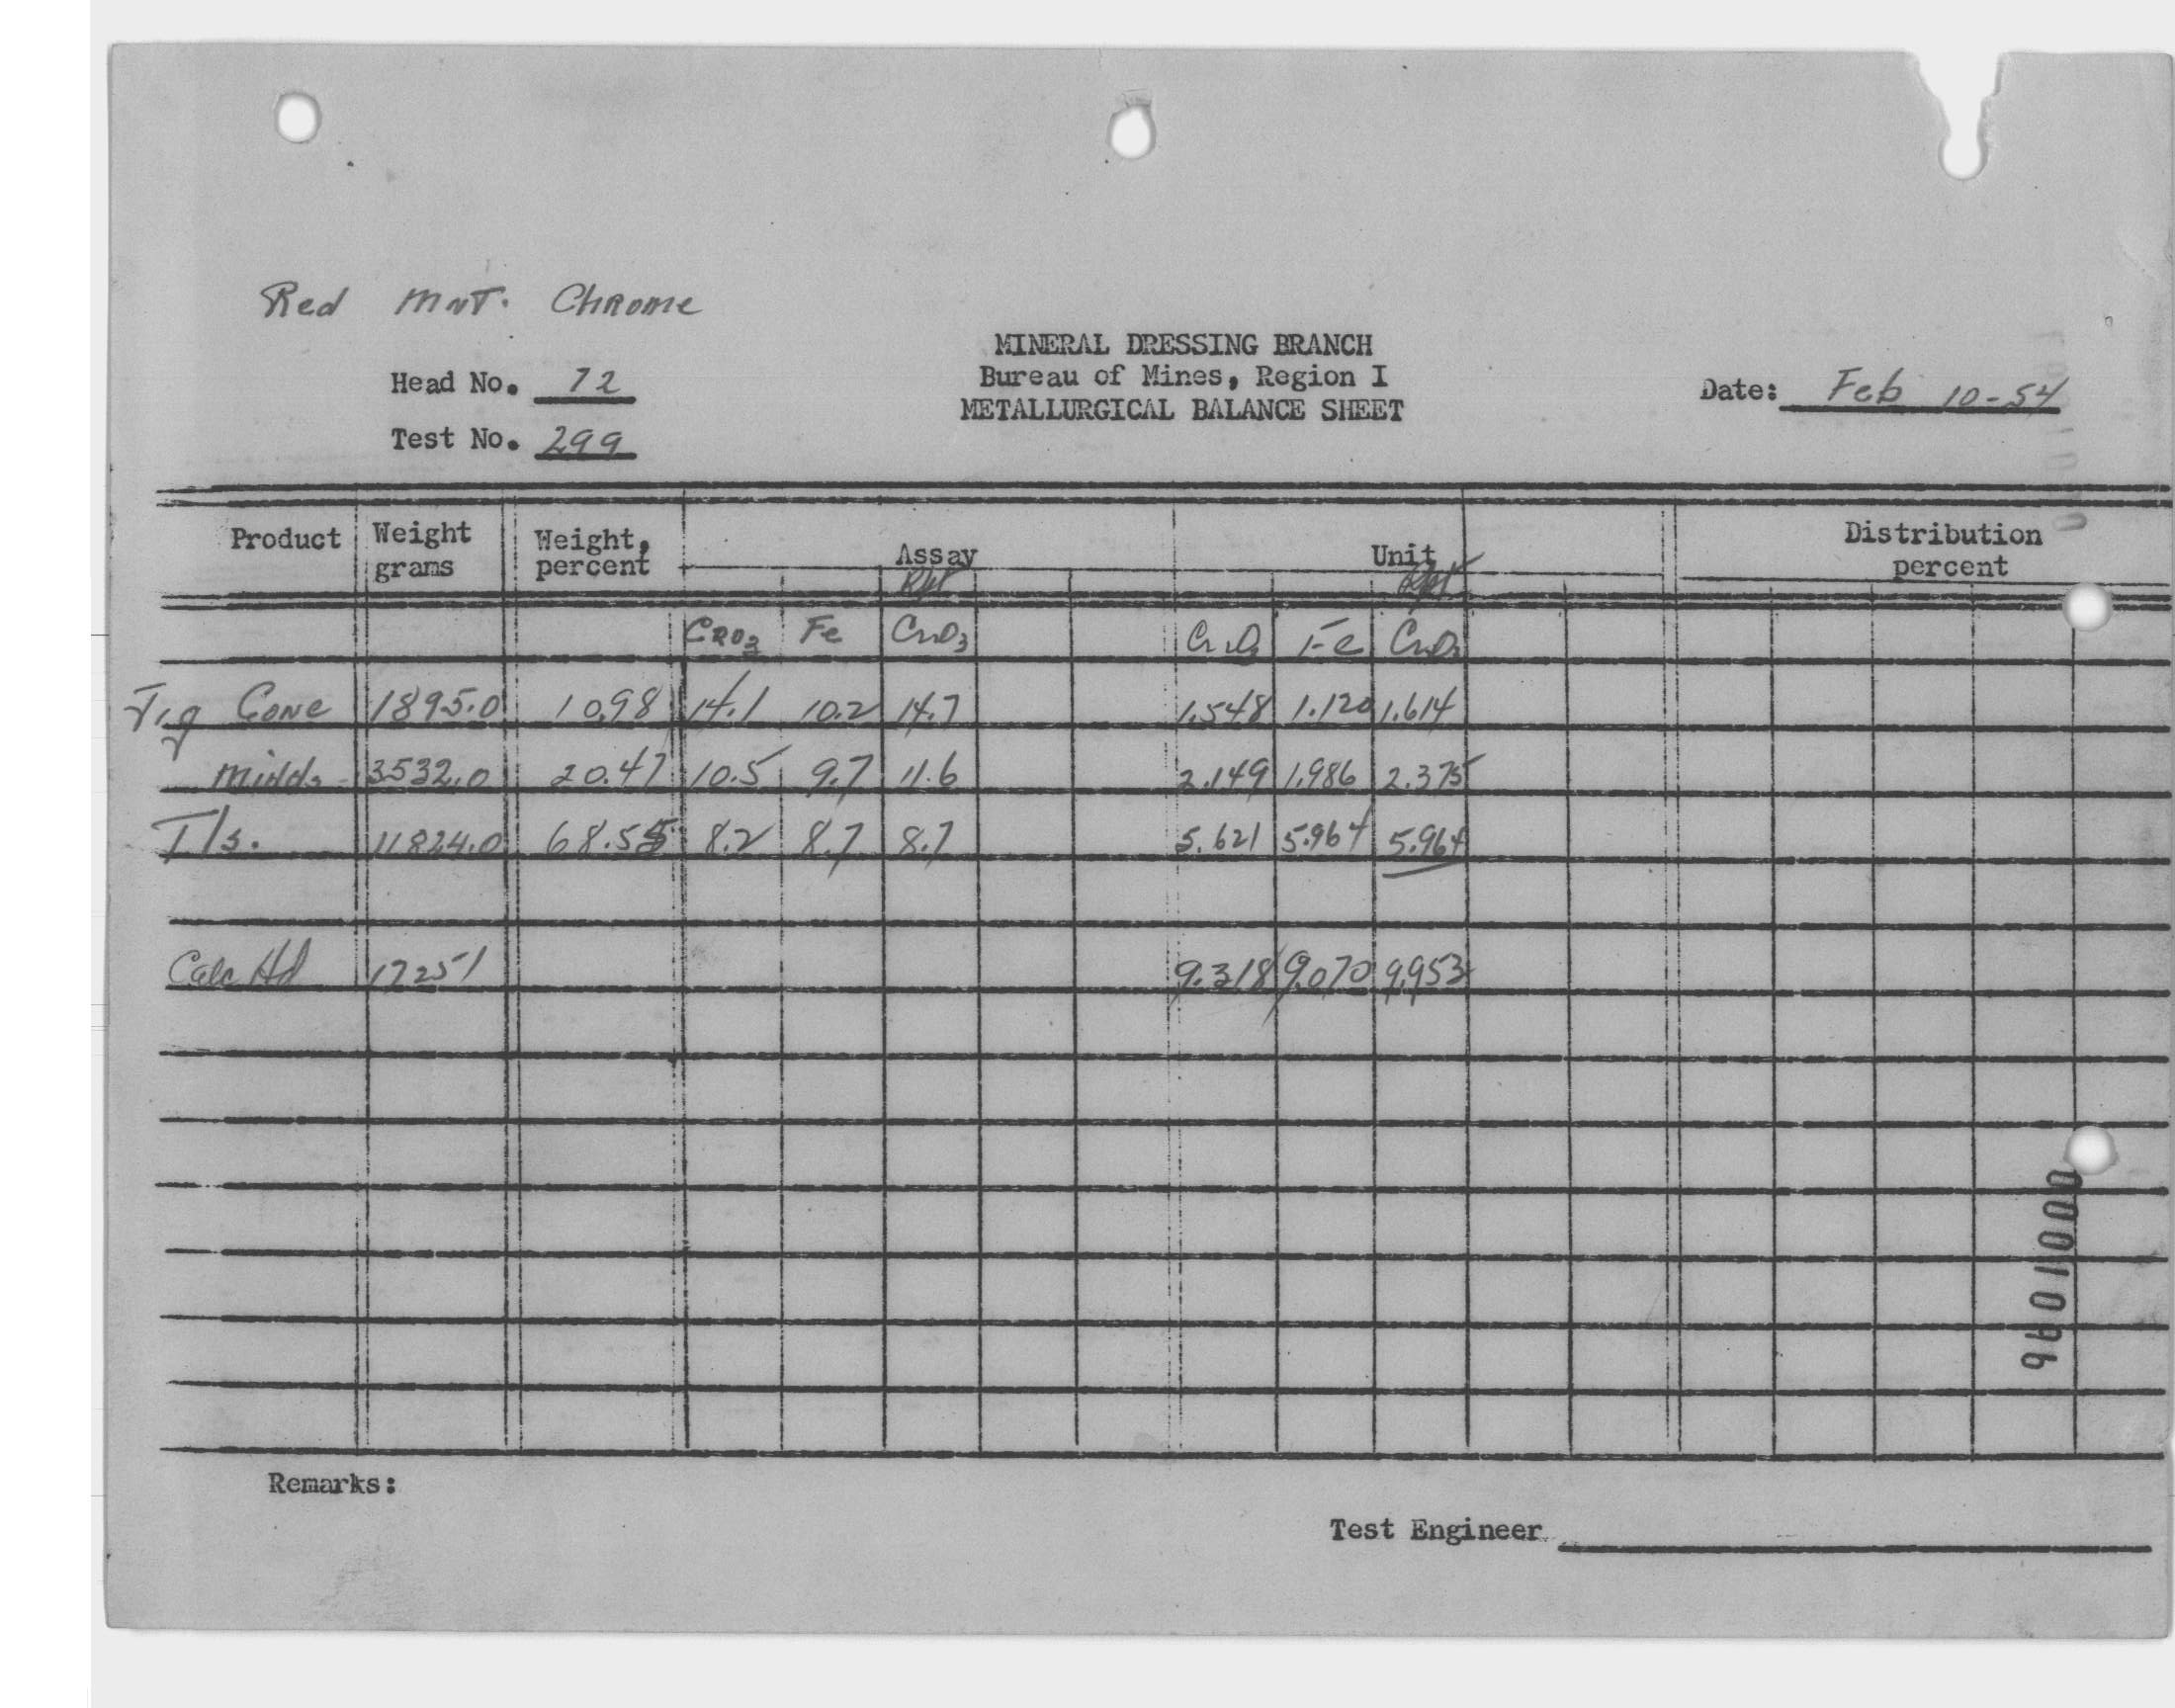 Red Mnt. Chrome
MINERAL DRESSING BRANCH
Head No. 72 Bureau of Mines, Region I Date: Feb 10-54
METALLURGICAL BALANCE SHEET
Test No. 299
Product Weight grams Weight, percent Assay Unit Distribution percent
Rpt Rpt
CrO3 Fe CrO3 CrO3 Fe CrO3
Jig Conc 1895.0 10.98 14.1 10.2 14.7 1.548 1.120 1.614
Midds 3532.0 20.47 10.5 9.7 11.6 2.149 1.986 2.375
Tls. 11824.0 68.55 8.2 8.7 8.7 5.621 5.964 5.964
Calc Hd 17251 9.318 9.070 9.953
Remarks:
Test Engineer